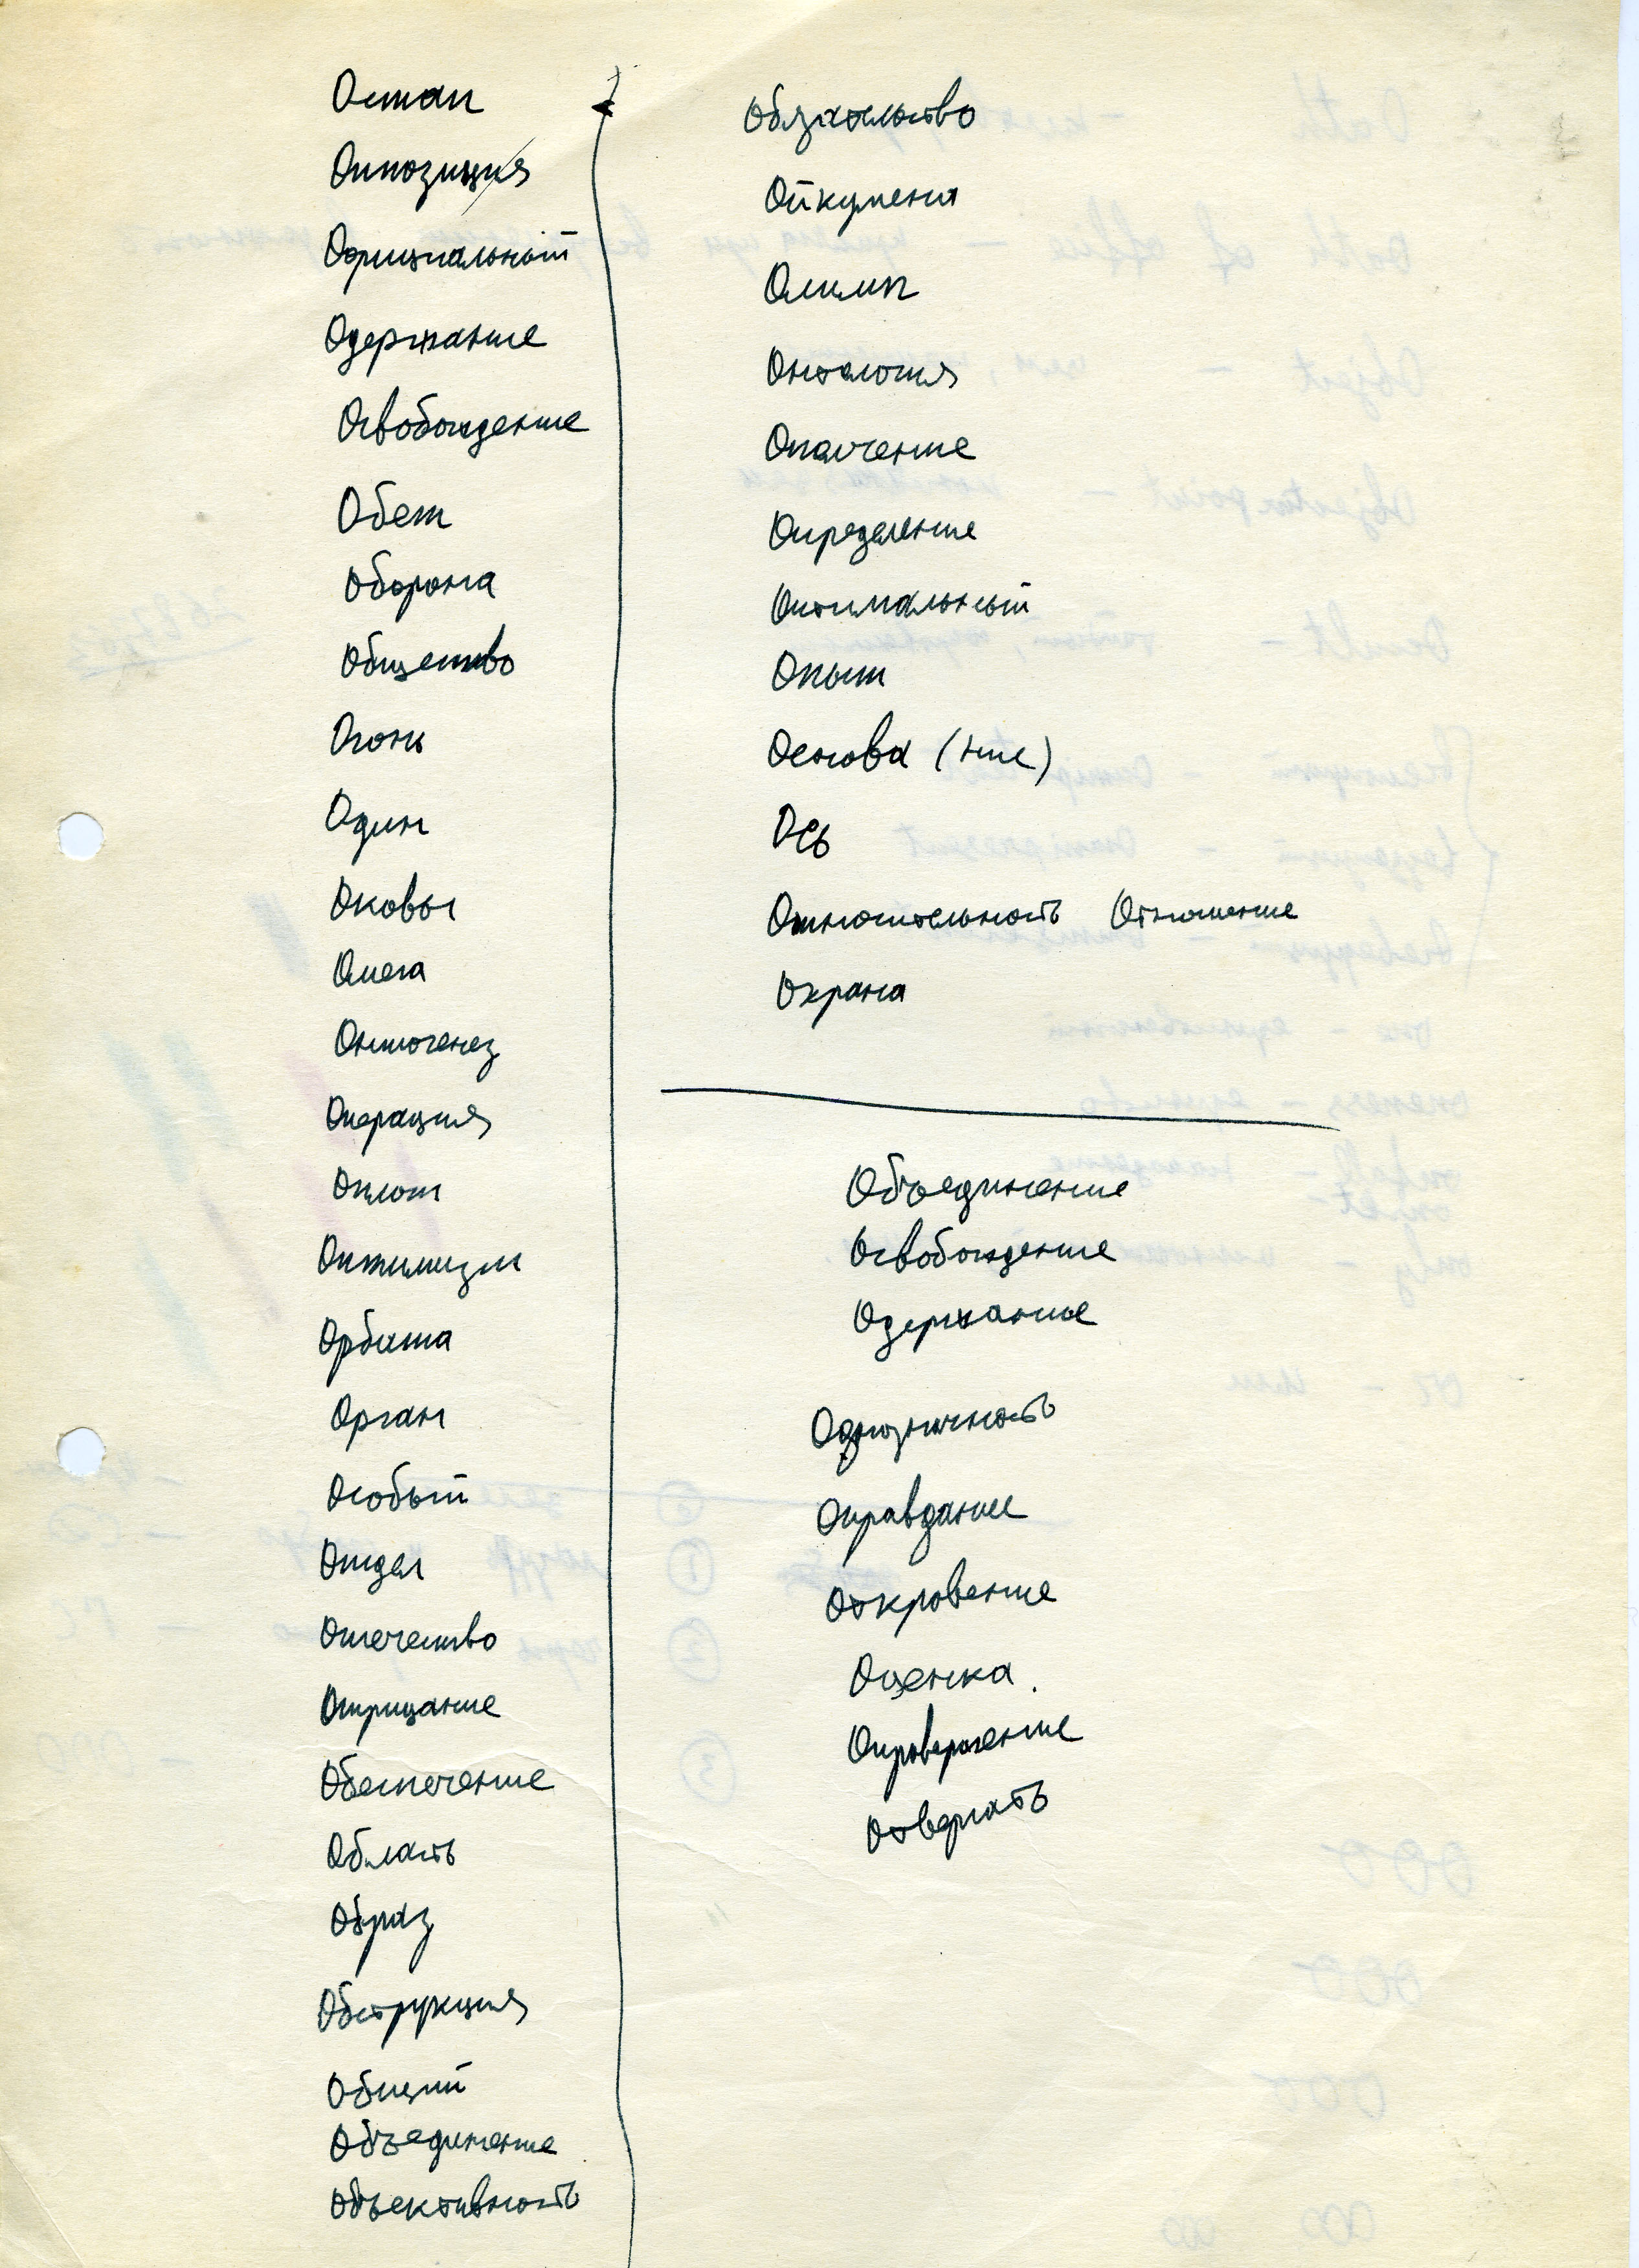 Остап
Оппозиция
Официальный
Одержание
Освобождение
Обет
Оборона
Общество
Огонь
Один
Оковы
Омега
Онтогенез
Операция
Оплот
Оптимизм
Орбита
Орган
Особый
Отдел
Отечество
Отрицание
Обеспечение
Область
Образ
Обструкция
Общий
Объединение
Объективность
Обязательство
Ойкумена
Олимп
Онтология
Ополчение
Определение
Оптимальный
Опыт
Основа (ние)
Ось
Относительность Отношение
Охрана
Объединение
Освобождение
Одержание
Однозначность
Оправдание
Откровение
Оценка
Опровержение
Отвергать